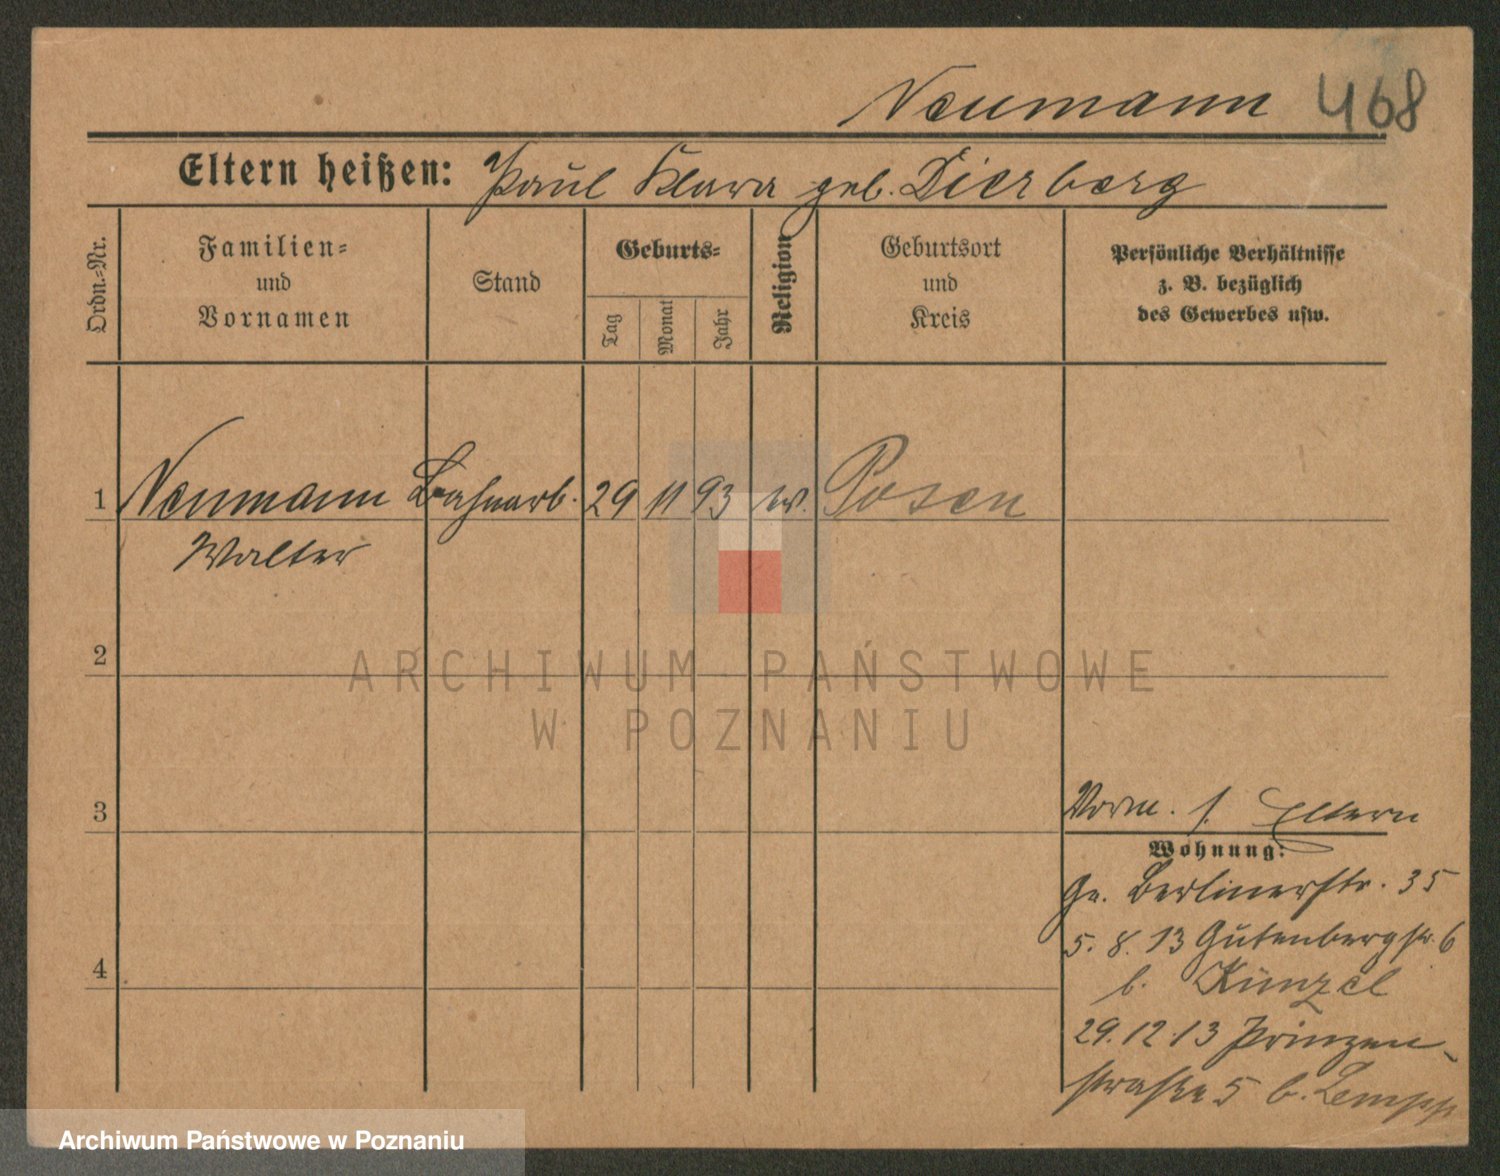 Neumann 468
Eltern heißen: Paul Klara geb. Dierberg
Ordn.-Nr.
Familien-
und
Vornamen
Stand
Geburts-
Tag
Monat
Jahr
Religion
Geburtsort
und
Kreis
Persönliche Verhältnisse
z. B. bezüglich
des Gewerbes usw.
1 Neumann Bahnarb. 29 11 93 Posen
Walter
2
ARCHIWUM PAŃSTWOWE
W POZNANIU
3
Vorm. s. Eltern
Wohnung:
Gr. Berlinerstr. 35
5. 8. 13 Gutenbergstr. 6
4
b. Künzel
29. 12. 13 Prinzen-
straße 5 b.
Archiwum Państwowe w Poznaniu